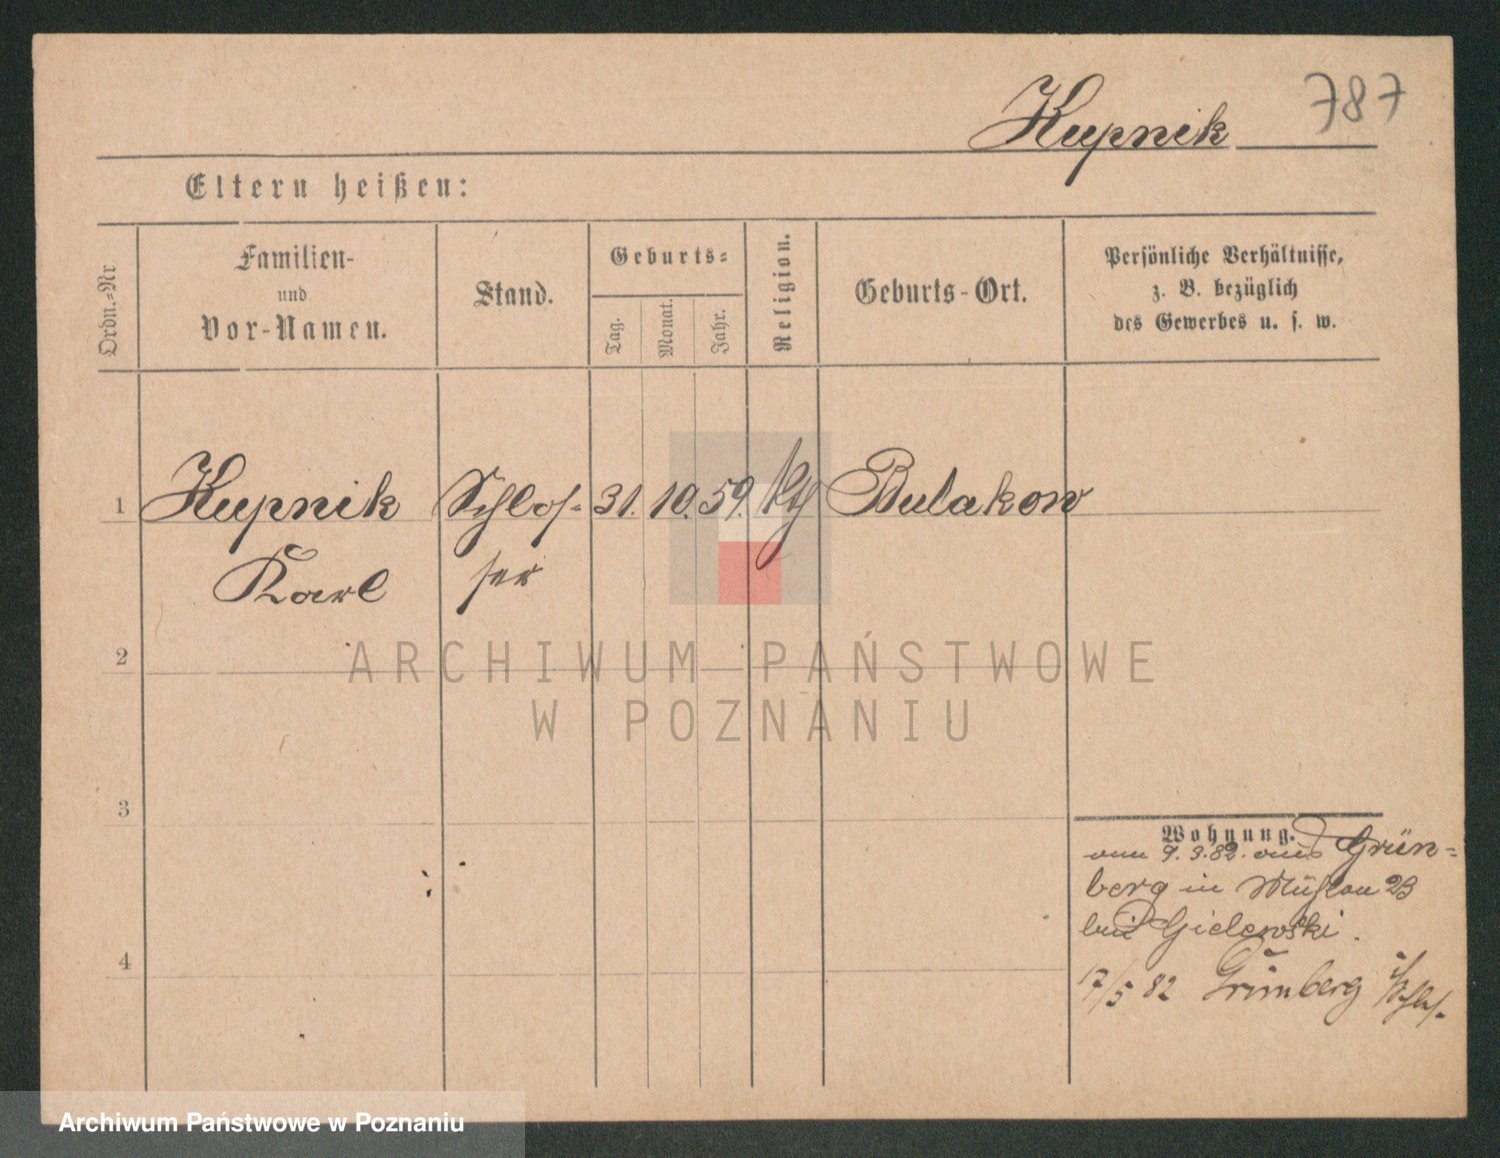 787
Kupnik
Eltern heißen:
Ordn.-Nr
Familien-
und
Vor-Namen.
Stand.
Geburts-
Tag.
Monat.
Jahr.
Religion.
Geburts-Ort.
Persönliche Verhältnisse,
z. B. bezüglich
des Gewerbes u. s. w.
1 Kupnik Schlos- 31. 10. 59. kth Bulakow
Karl ser
2
ARCHIWUM PAŃSTWOWE
W POZNANIU
3
4
Wohnung.
9. 3. 82. aus Grün-
berg in Mühlen 23
bei Gielewski.
17/5 82 Grünberg i/Schles.
Archiwum Państwowe w Poznaniu